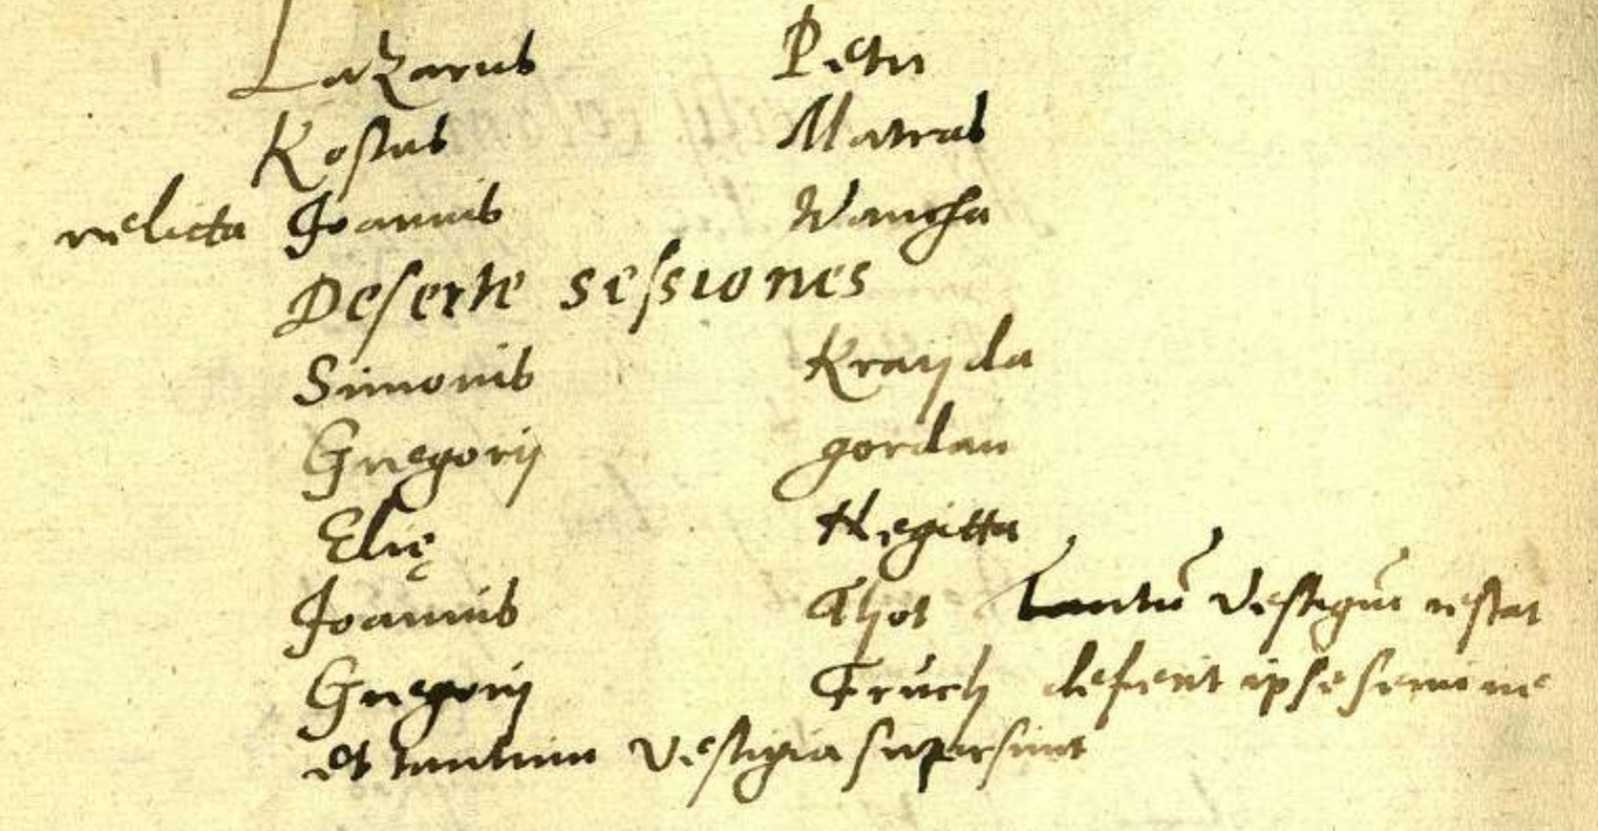 Lazarus Petri
Kostas Matras
relicta Joannis Wancha
Deserte sessiones
Simonis Krayda
Gregorij gordan
Elię Negitta
Joannis Thot tantū vestigiū restat
Gregorij Fruch deferit ipse semine
et tantum vestigia supersunt